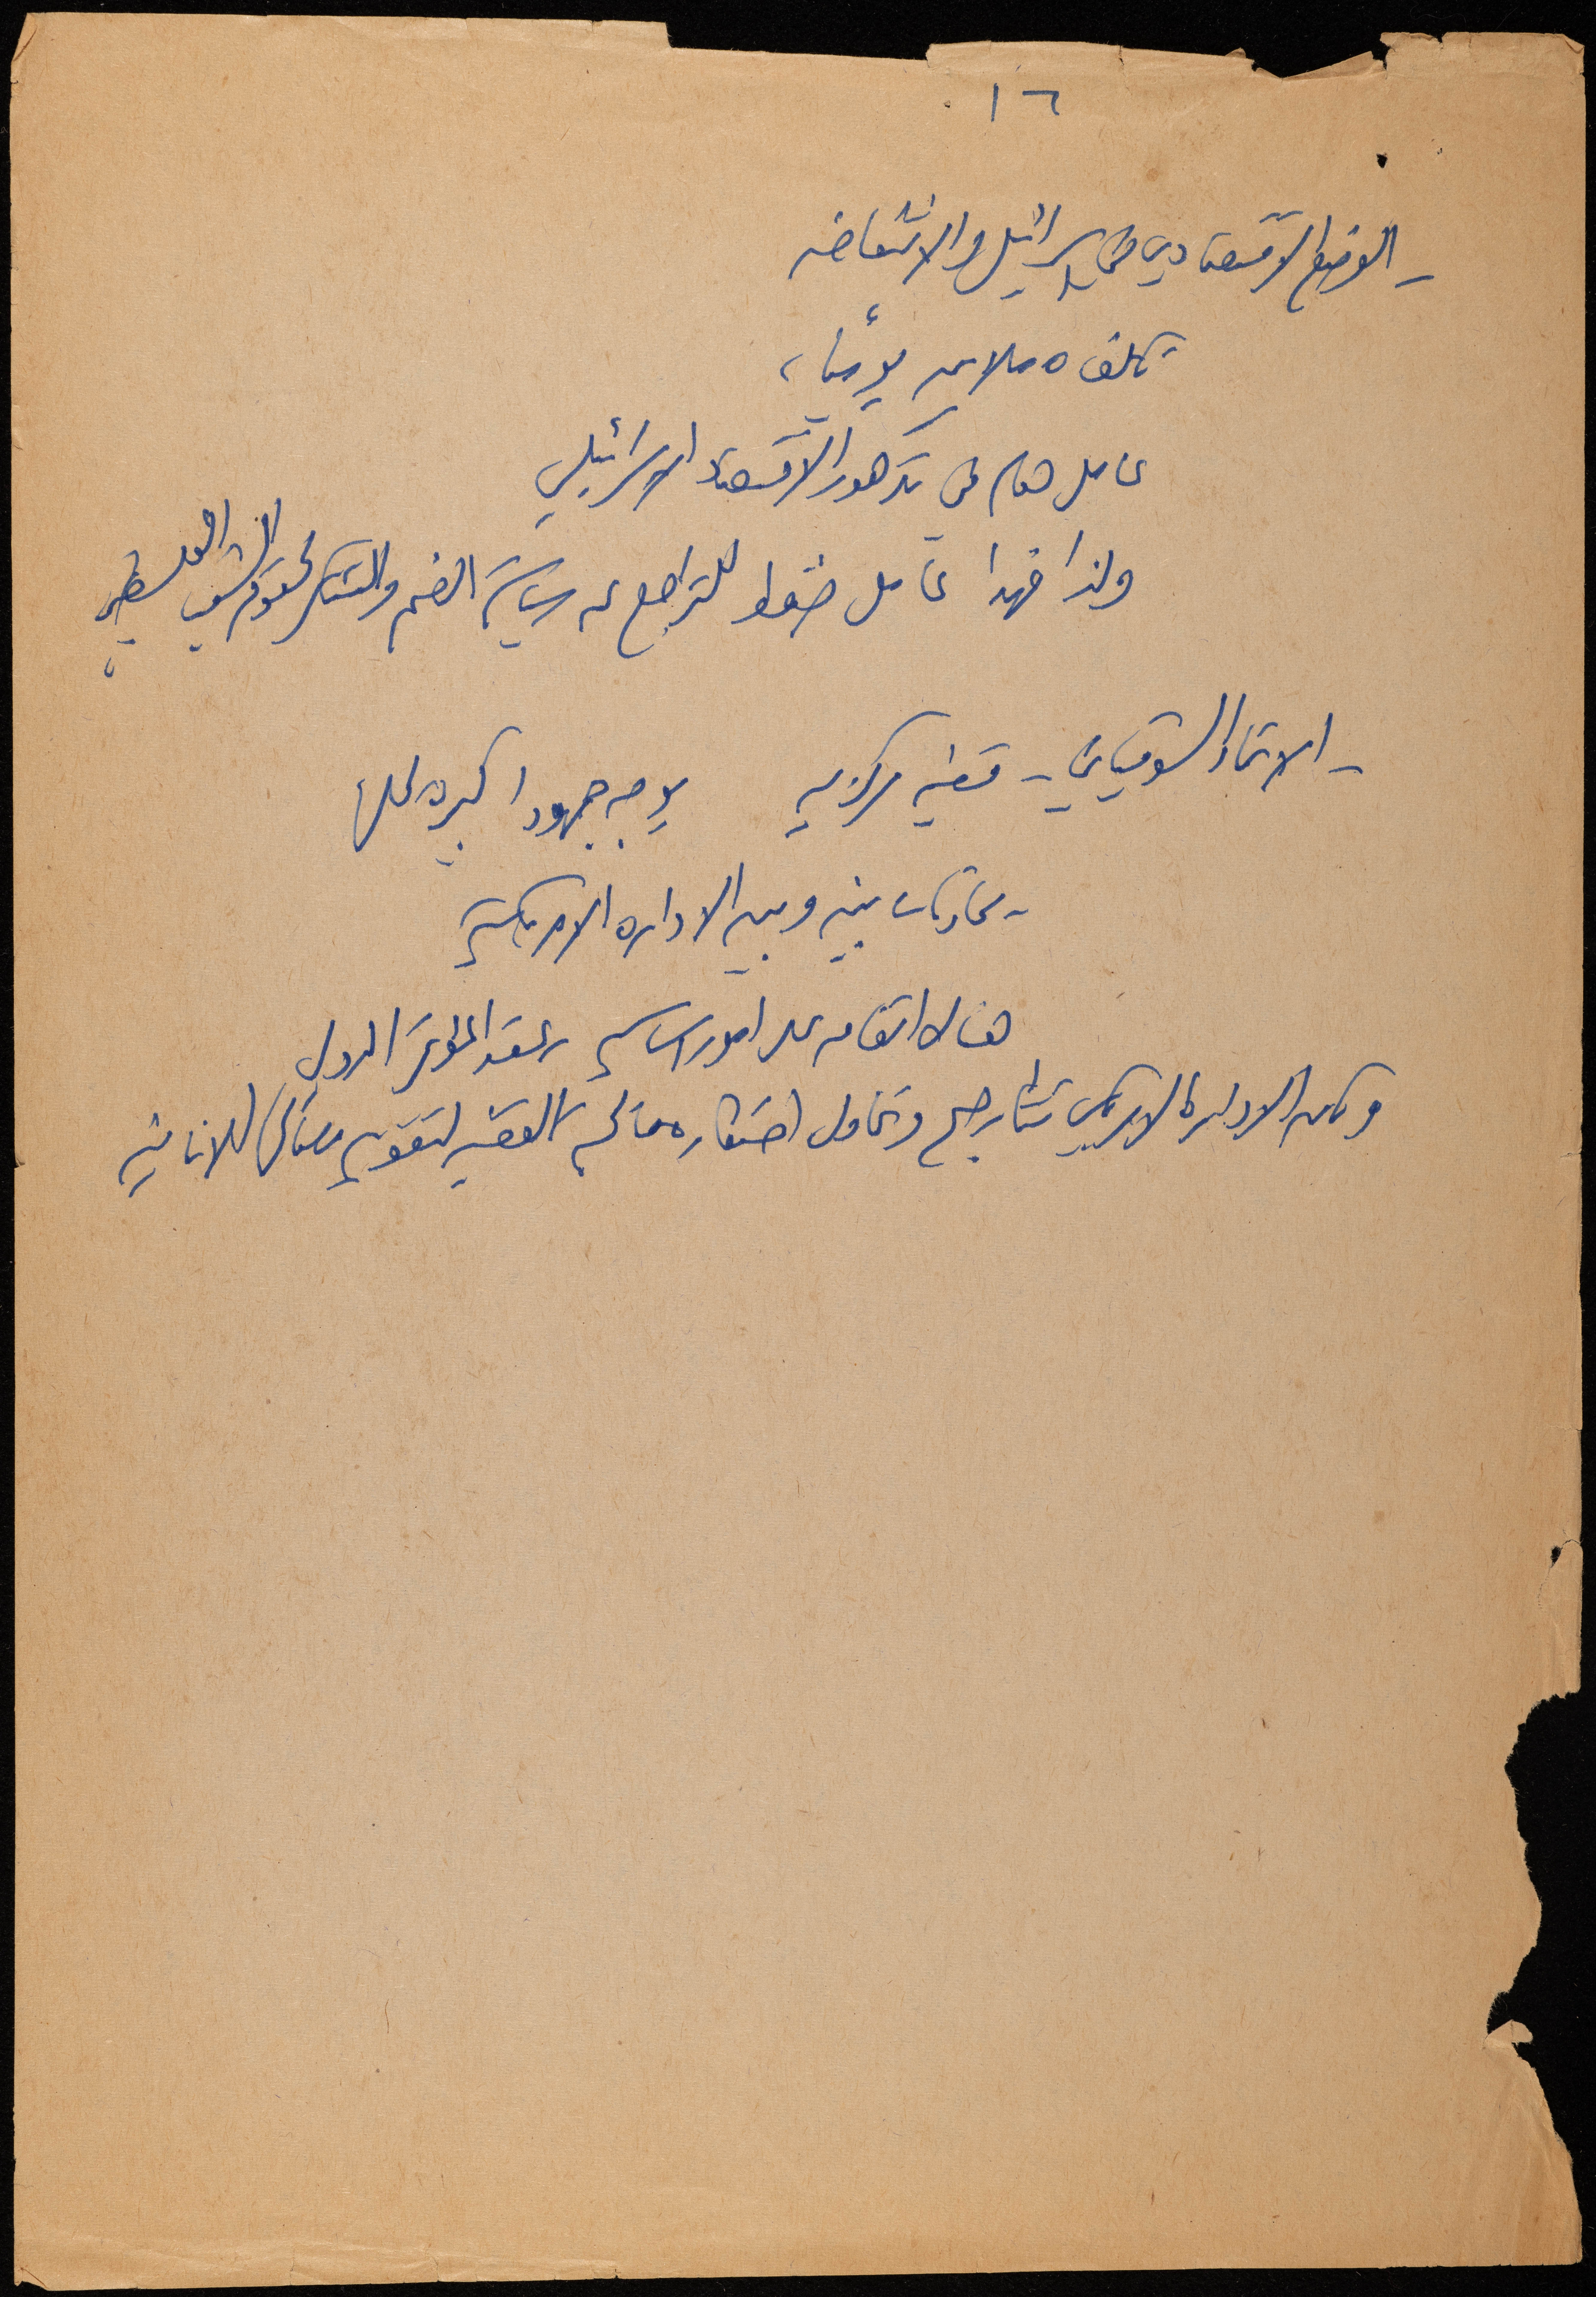 ١٦
- الوضع الاقتصادي في اسرائيل والانتفاضه
تكلف ٥ ملايين يوميًا،
عامل هام في تدهور الاقتصاد الإسرائيلي
ولذا فهذا عامل ضغط للتراجع عن سياسة الضم والتنكر لحقوق الشعب الفلسطيني
- الاتحاد السوفياتي - قضيه مركزيه يوجه جهودا كبيره لحلها
- محادثات بينه وبين الاداره الامريكية
هناك اتفاق على امور اساسيه لعقد المؤتمر الدولي
ولكن الادارة الامريكيه تتأرجح وتحاول معالجة القضيه لتقويه مصالحها الانانيه